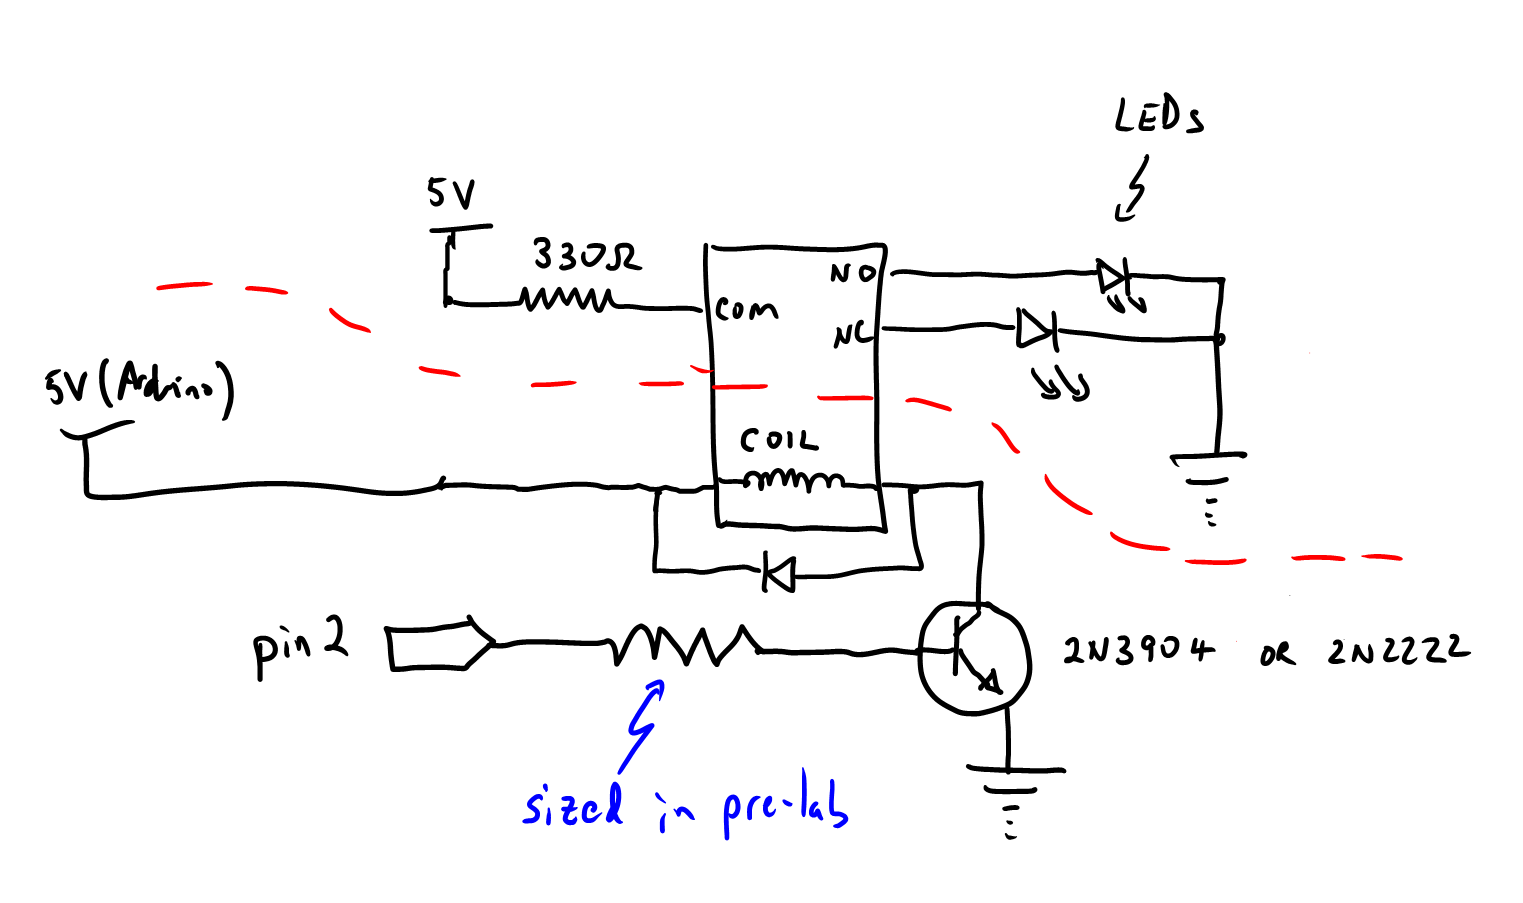 LEDs
5V
330Ω
NO
COM
NC
5V (Arduino)
COIL
pin 2
2N3904 OR 2N2222
sized in pre-lab